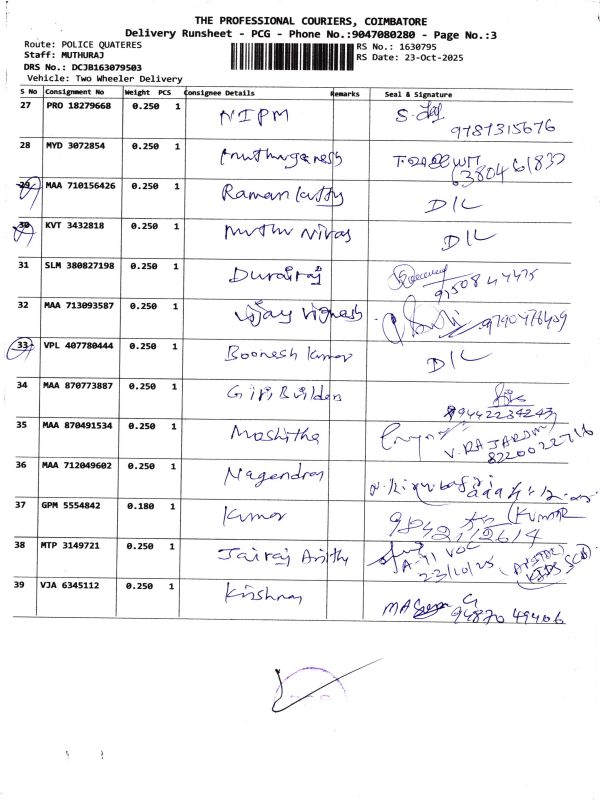 THE PROFESSIONAL COURIERS, COIMBATORE
Delivery Runsheet - PCG - Phone No.:9047080280 - Page No.:3
Route: POLICE QUATERES RS No.: 1630795
Staff: MUTHURAJ RS Date: 23-Oct-2025
DRS No.: DCJB163079503
Vehicle: Two Wheeler Delivery
S No Consignment No Weight PCS Consignee Details Remarks Seal & Signature
27 PRO 18279668 0.250 1 NIPM
9787315676
28 MYD 3072854 0.250 1 Muthuganesh
6380461832
29 MAA 710156426 0.250 1 Raman kutty D/L
30 KVT 3432818 0.250 1 Muthu Nivas D/L
31 SLM 380827198 0.250 1 Durairaj
32 MAA 713093587 0.250 1 Vijay Vignesh
9790476409
33 VPL 407780444 0.250 1 Boonesh Kumar D/L
34 MAA 870773887 0.250 1 Giri Builders
9442234243
35 MAA 870491534 0.250 1 Moshitha
V. RAJARAM
8220022716
36 MAA 712049602 0.250 1 Nagendran
37 GPM 5554842 0.180 1 Kumar (KUMAR
9842112614
38 MTP 3149721 0.250 1 Jairaj Arithy
23/10/25
39 VJA 6345112 0.250 1 Krishnaj
94870 49406